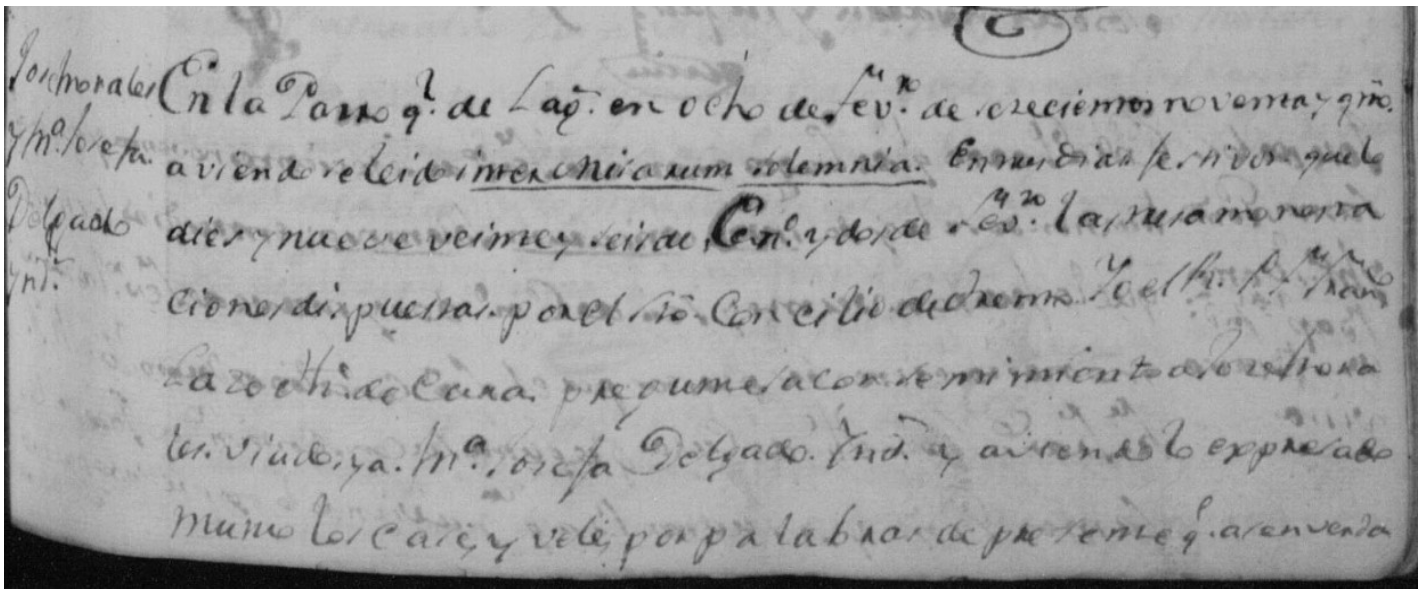 Jose Morales
y Mª. Josepha.
Delgado
Ynd.ˢ
En la Parroqˡ. de Lag.ˢ en ocho de Fevʳᵒ. de setecientos noventa, y
aviendose leido inter missarum solemnia. En tres dias festivos que lo
dies y nueve veinte y seis de Enº. y dos de Fevʳᵒ. las tres amonesta
ciones dispuestas por el Stō. Concilio de Trento Yo el
de Cura. pregunte su consentimiento a Jose Mora
les. viudo, y a. Mª. Josefa Delgado. Ynd.ˢ y aviendolo expresado
mutuo los case, y velé, por palabras de presente qᵉ. asen verda